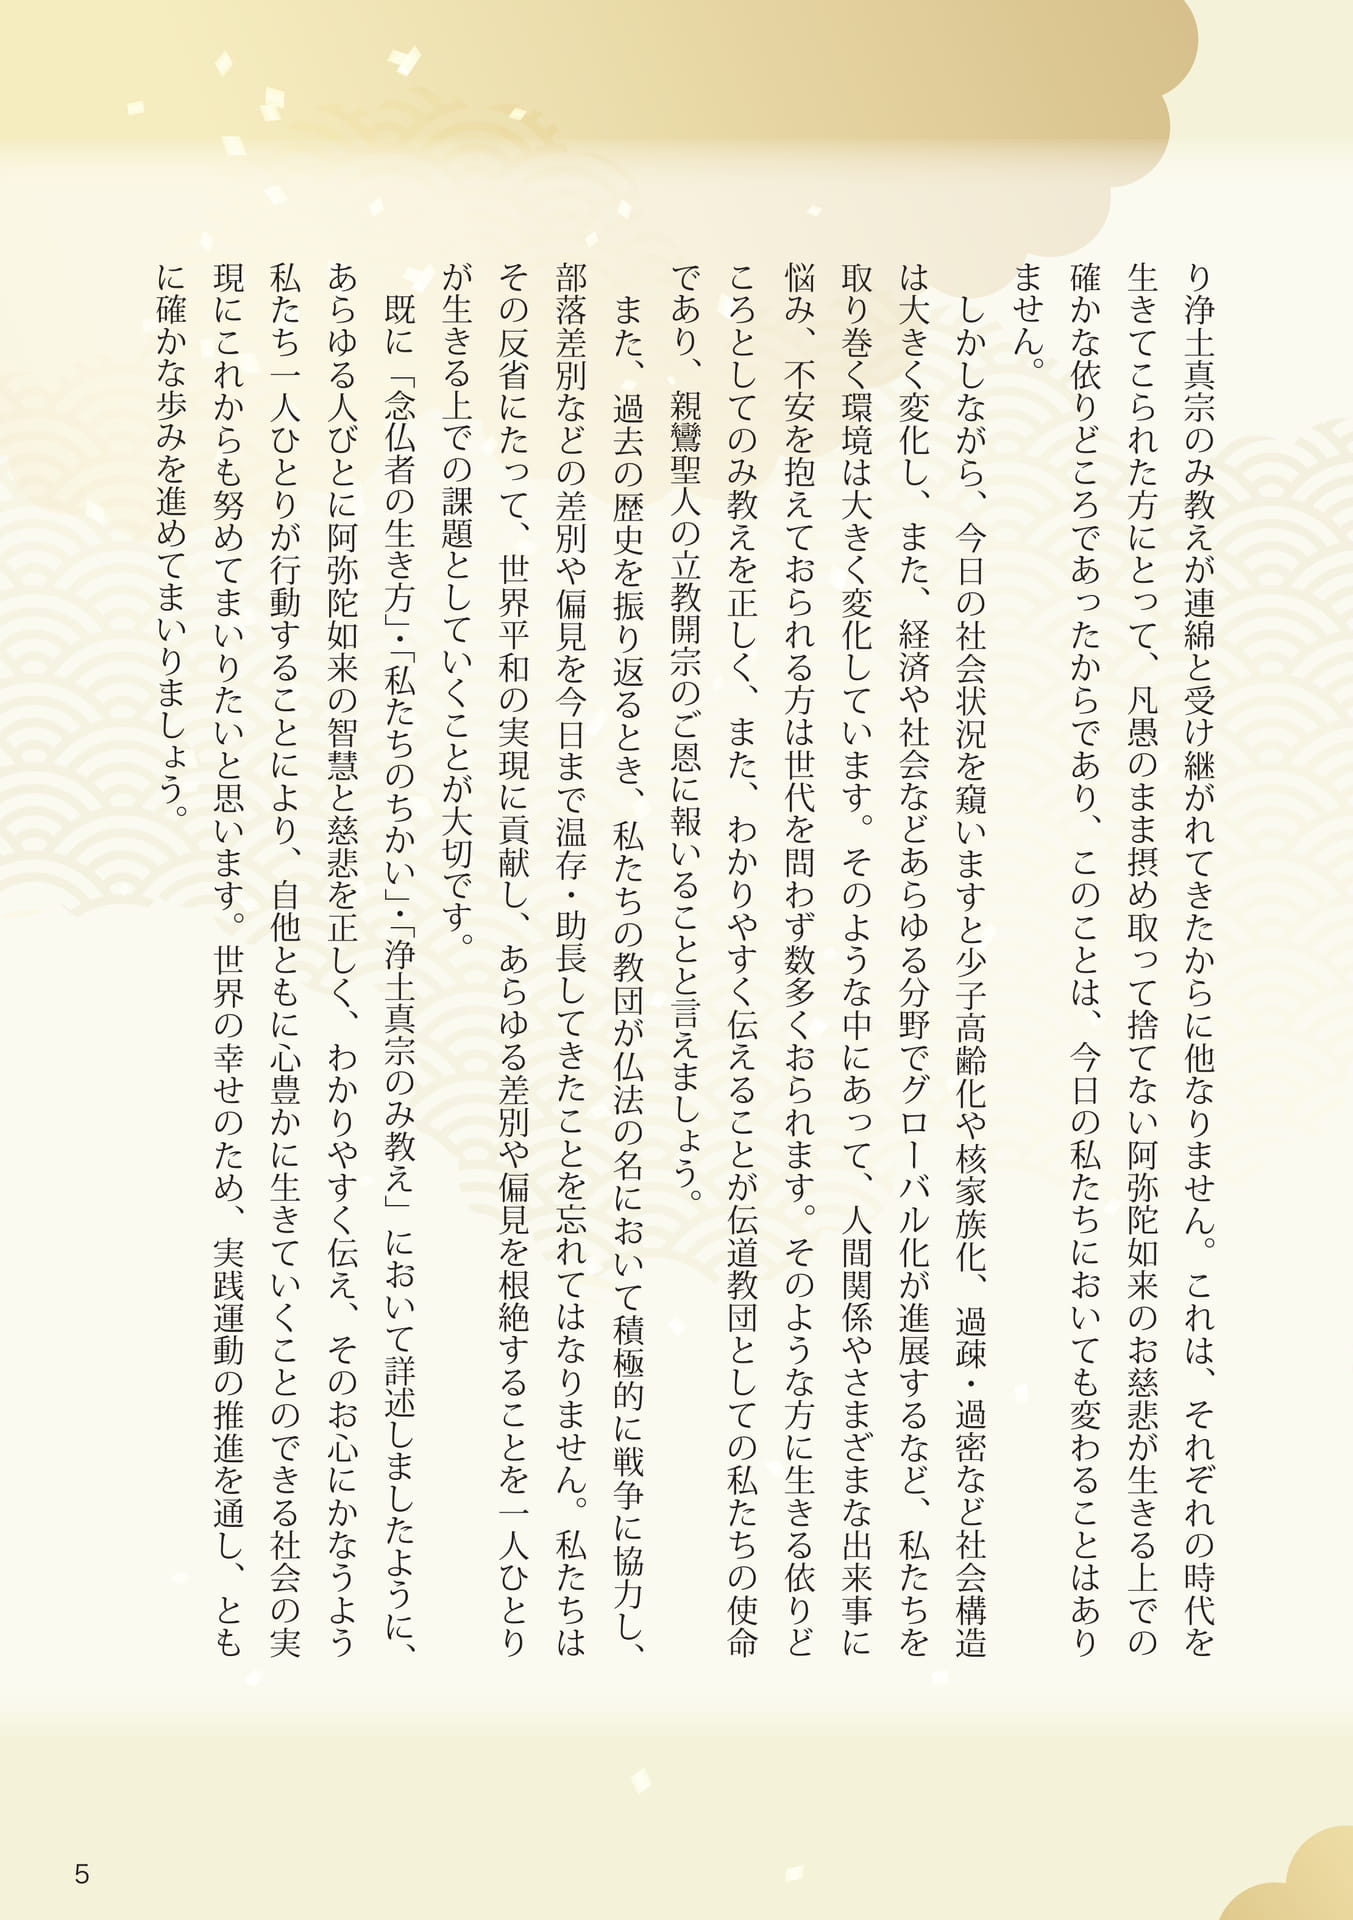 り浄土真宗のみ教えが連綿と受け継がれてきたからに他なりません。これは、それぞれの時代を
生きてこられた方にとって、凡愚のまま摂め取って捨てない阿弥陀如来のお慈悲が生きる上での
確かな依りどころであったからであり、このことは、今日の私たちにおいても変わることはあり
ません。
　しかしながら、今日の社会状況を窺いますと少子高齢化や核家族化、過疎・過密など社会構造
は大きく変化し、また、経済や社会などあらゆる分野でグローバル化が進展するなど、私たちを
取り巻く環境は大きく変化しています。そのような中にあって、人間関係やさまざまな出来事に
悩み、不安を抱えておられる方は世代を問わず数多くおられます。そのような方に生きる依りど
ころとしてのみ教えを正しく、また、わかりやすく伝えることが伝道教団としての私たちの使命
であり、親鸞聖人の立教開宗のご恩に報いることと言えましょう。
　また、過去の歴史を振り返るとき、私たちの教団が仏法の名において積極的に戦争に協力し、
部落差別などの差別や偏見を今日まで温存・助長してきたことを忘れてはなりません。私たちは
その反省にたって、世界平和の実現に貢献し、あらゆる差別や偏見を根絶することを一人ひとり
が生きる上での課題としていくことが大切です。
　既に「念仏者の生き方」・「私たちのちかい」・「浄土真宗のみ教え」において詳述しましたように、
あらゆる人びとに阿弥陀如来の智慧と慈悲を正しく、わかりやすく伝え、そのお心にかなうよう
私たち一人ひとりが行動することにより、自他ともに心豊かに生きていくことのできる社会の実
現にこれからも努めてまいりたいと思います。世界の幸せのため、実践運動の推進を通し、とも
に確かな歩みを進めてまいりましょう。
5